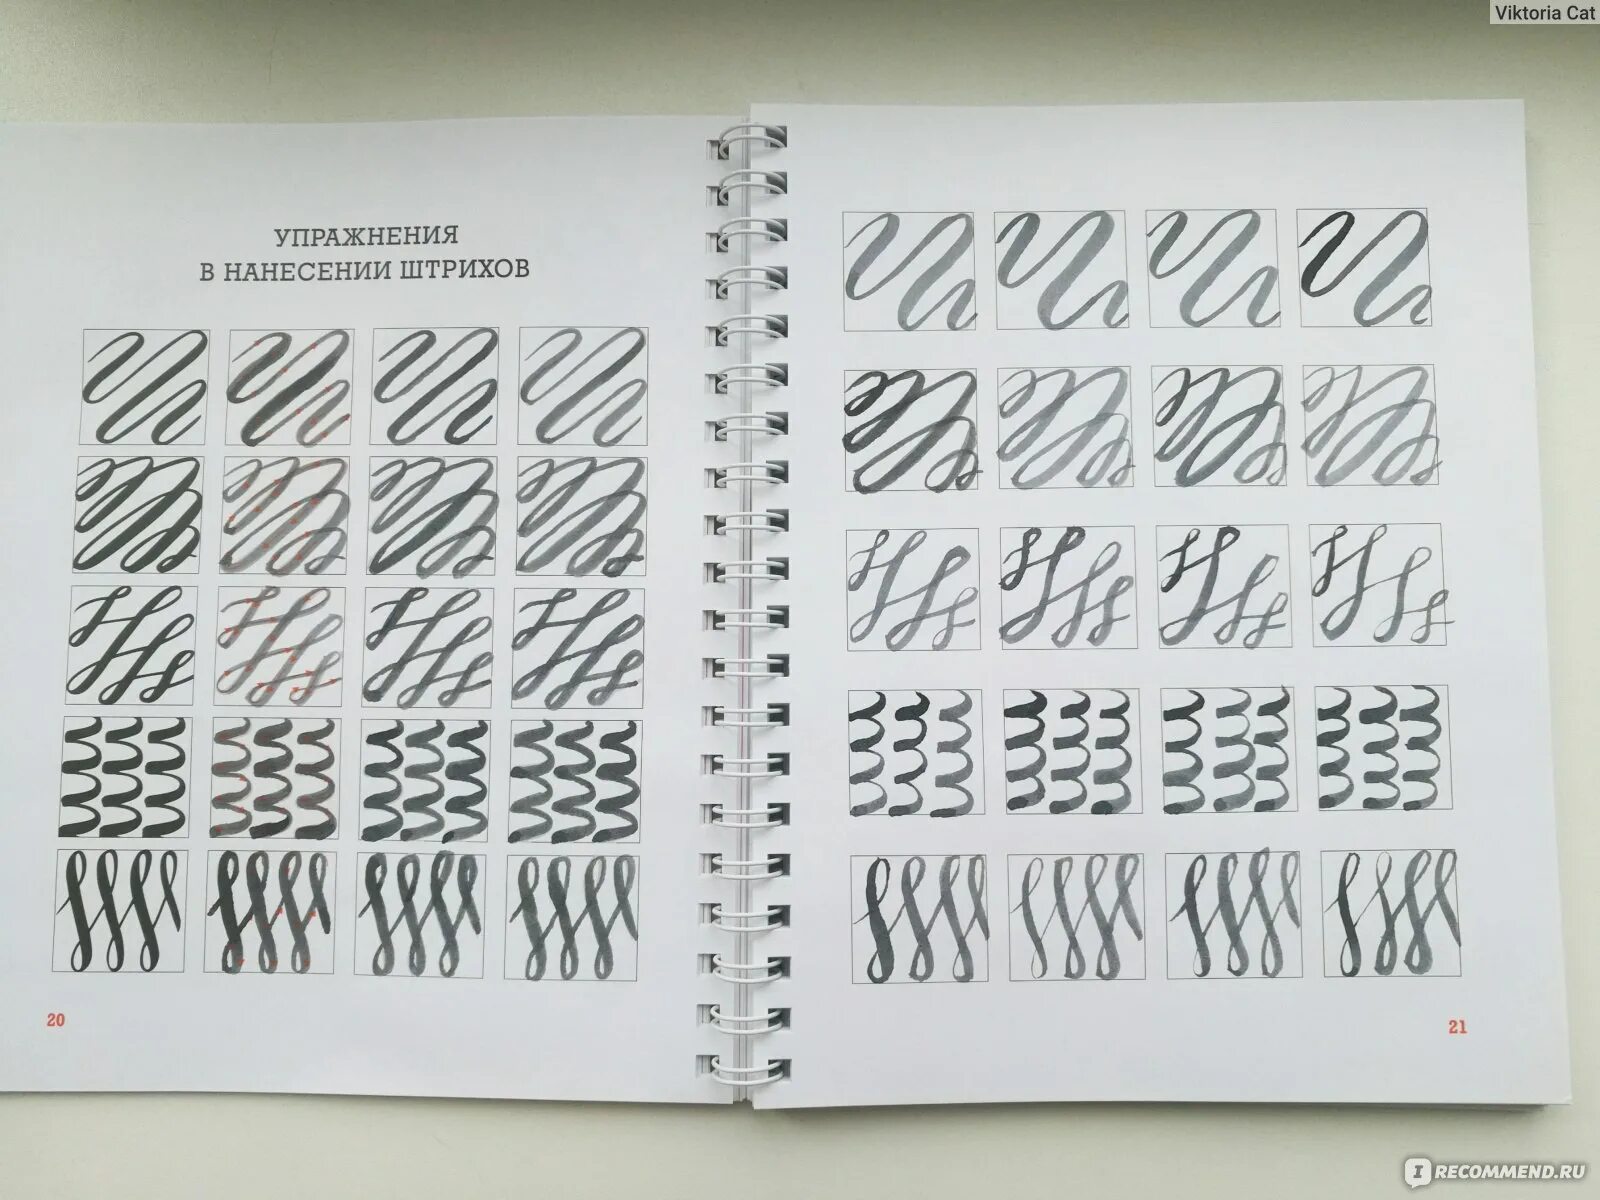 Viktoria Cat
УПРАЖНЕНИЯ
В НАНЕСЕНИИ ШТРИХОВ
20
21
IRECOMMEND.RU